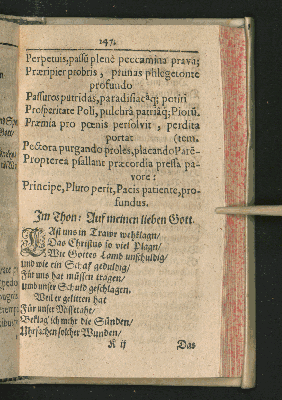 147.
Perpetuis, passū plenè peccamina prava;
Præripier probris, prunas phlegetonte
profundo
Passuros putridas, paradisiacâq; potiri
Prosperitate Poli, pulchrâ patriâq; Piorū.
Præmia pro pœnis persolvit, perdita
portat (tem.
Pectora purgando proles, placando Parē-
Propterea psallant præcordia pressa pa-
vore:
Principe, Pluto perit, Pacis patiente, pro-
fundus.
Im Thon: Auf meinen lieben Gott.
LAst uns in Trawr wehklagn/
Das Christus so viel Plagn/
Wie Gottes Lamb unschuldig/
und wie ein Schaf gedultig/
Für uns hat müssen tragen/
und unser Schuld geschlagen.
Weil er gelitten hat
Für unser Missethat/
Beklag ich mehr die Sünden/
Uhrsachen solcher Wunden/
K ij Das